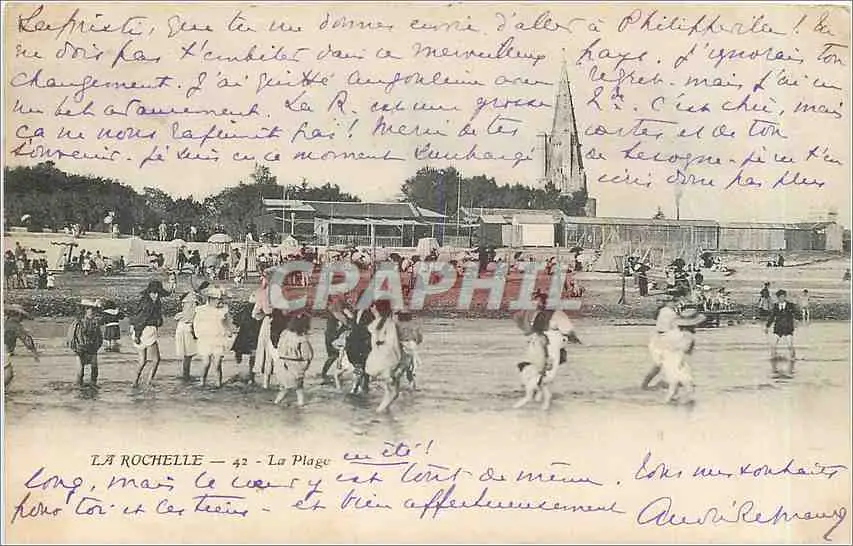 Sapristi, que tu me donnes envie d'aller à Philippeville! Tu
ne dois pas t'embêter dans ce merveilleux pays. J'ignorais ton
changement. J'ai quitté Angoulême avec regret. mais j'ai eu
un bel avancement. La R. est une grosse 2e. C'est chic, mais
ça ne nous rajeunit pas! Merci de tes cartes et de ton
souvenir. Je suis en ce moment surchargé de besogne. je ne t'en
écris donc pas plus
CPARAMA
LA ROCHELLE — 42 - La Plage en été!
long, mais le cœur y est tout de même. Tous mes souhaits
pour toi et les tiens - et bien affectueusement